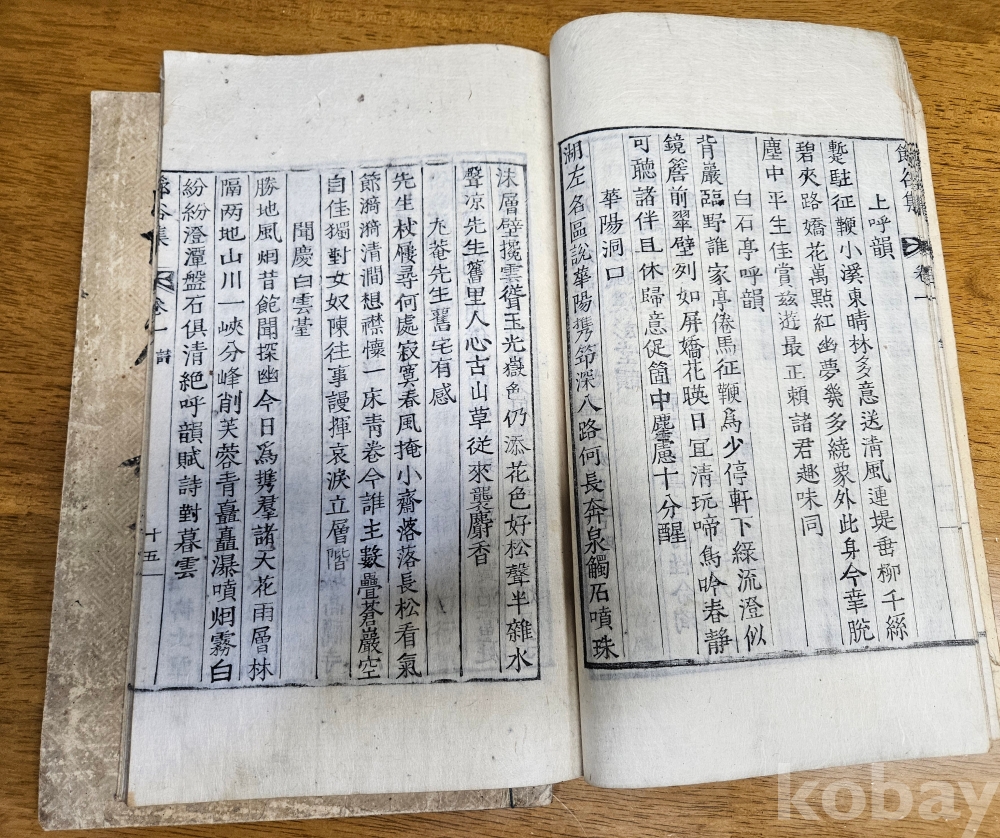 上呼韻
蹔駐征鞭小溪東晴林多意送清風連堤垂柳千絲
碧夾路嬌花萬點紅幽夢幾多繞象外此身今幸脫
塵中平生佳賞玆遊最正賴諸君趣味同
白石亭呼韻
背巖臨野誰家亭倦馬征鞭爲少停軒下綠流澄似
鏡簷前翠壁列如屛嬌花暎日冝清玩啼鳥吟春靜
可聽諸伴且休歸意促箇中塵慮十分醒
華陽洞口
湖左名區說華陽携笻深入路何長奔泉觸石噴珠
沫層壁攙雲聳玉光嶽色仍添花色好松聲半雜水
聲凉先生舊里人心古山草從來襲麝香
尤菴先生舊宅有感
先生杖屨尋何處寂寞春風掩小齋落落長松看氣
節漪漪清澗想襟懷一床青卷今誰主數疊蒼巖空
自佳獨對女奴陳往事謾揮哀淚立層階
聞慶白雲䑓
勝地風烟昔飽聞探幽今日爲携羣諸天花雨層林
隔两地山川一峽分峰削芙蓉青矗矗瀑噴烟霧白
紛紛澄潭盤石俱清絕呼韻賦詩對暮雲
谷集 卷一 詩
十五
谷集 卷一
kobay